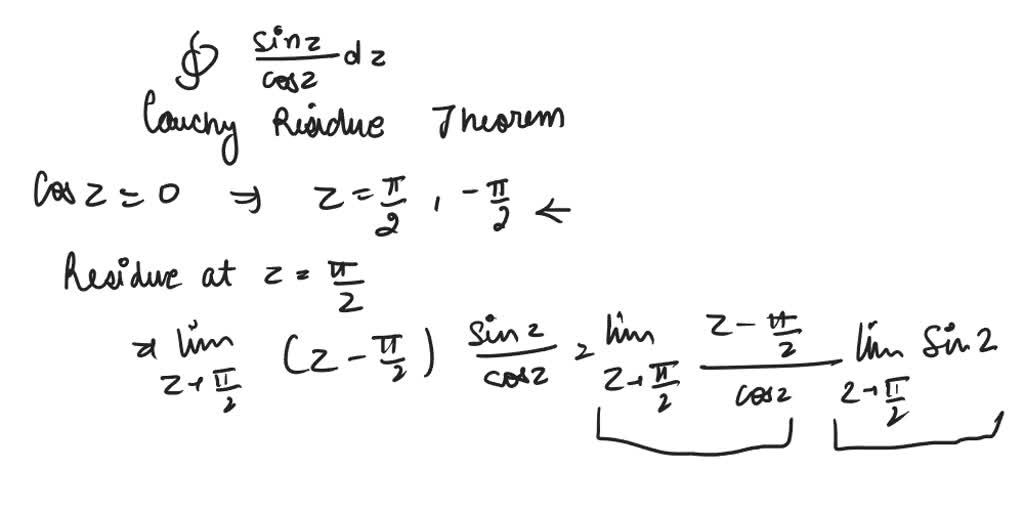 ∮ sinz/cosz dz
Cauchy Residue Theorem
Cos z = 0 ⇒ z = π/2 , -π/2 ←
Residue at z = π/2
⇒ lim z→π/2 (z - π/2) sinz/cosz = lim z→π/2 (z - π/2)/cosz lim z→π/2 Sin z